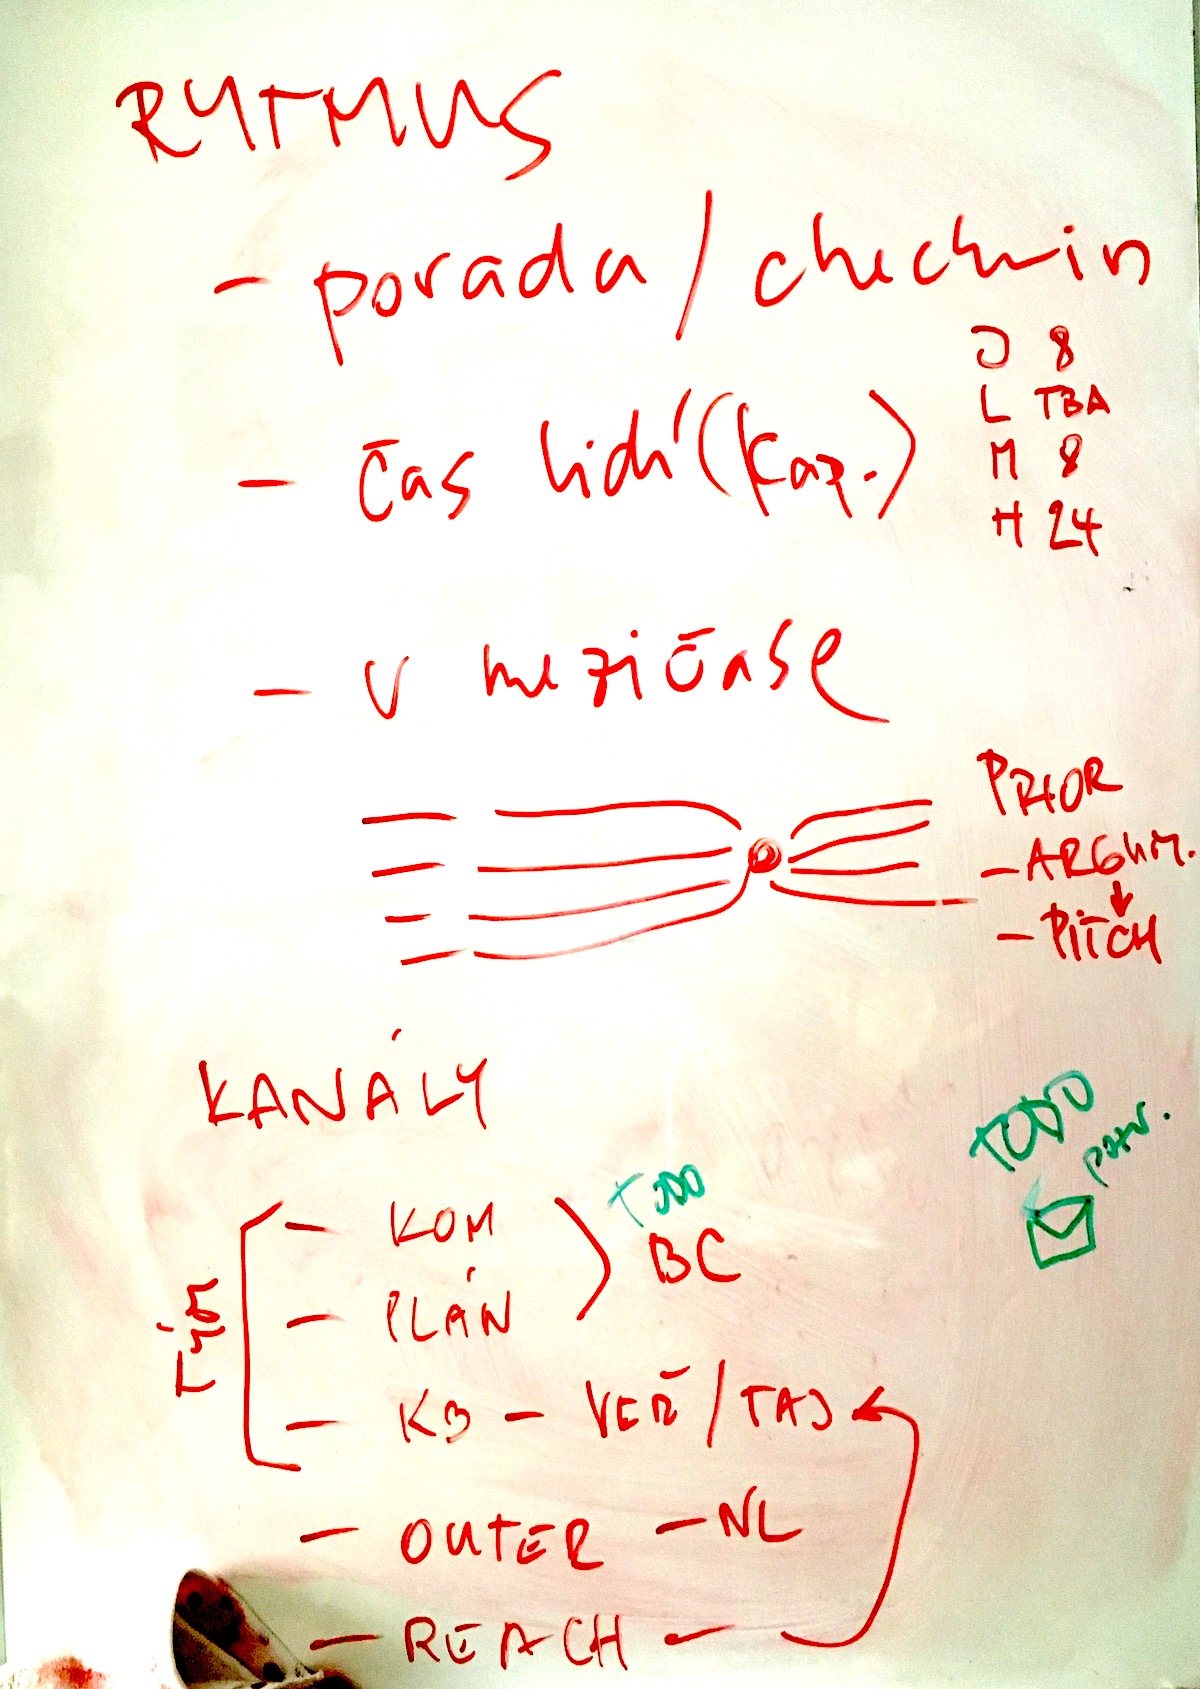 RYTMUS
- porada / checkin
J 8
L TBA
M 8
H 24
- čas lidí (kap.)
- v mezičase
PRIOR
- ARGUM.
- PITCH
KANÁLY
TODO
TODO
- KOM
BC
- PLÁN
Tým
- KB - VEŘ / TAJ
- OUTER - NL
- REACH -